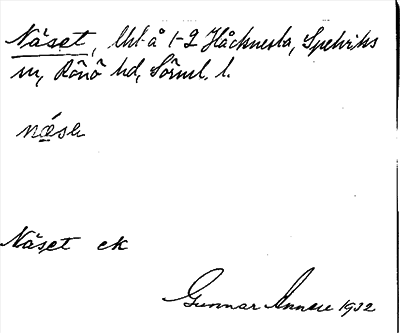 Näset, lht å 1-2 Håcknesta, Spelviks
sn, Rönö hd, Sörml. l.
næsə
Näset ek
Gunnar 1932